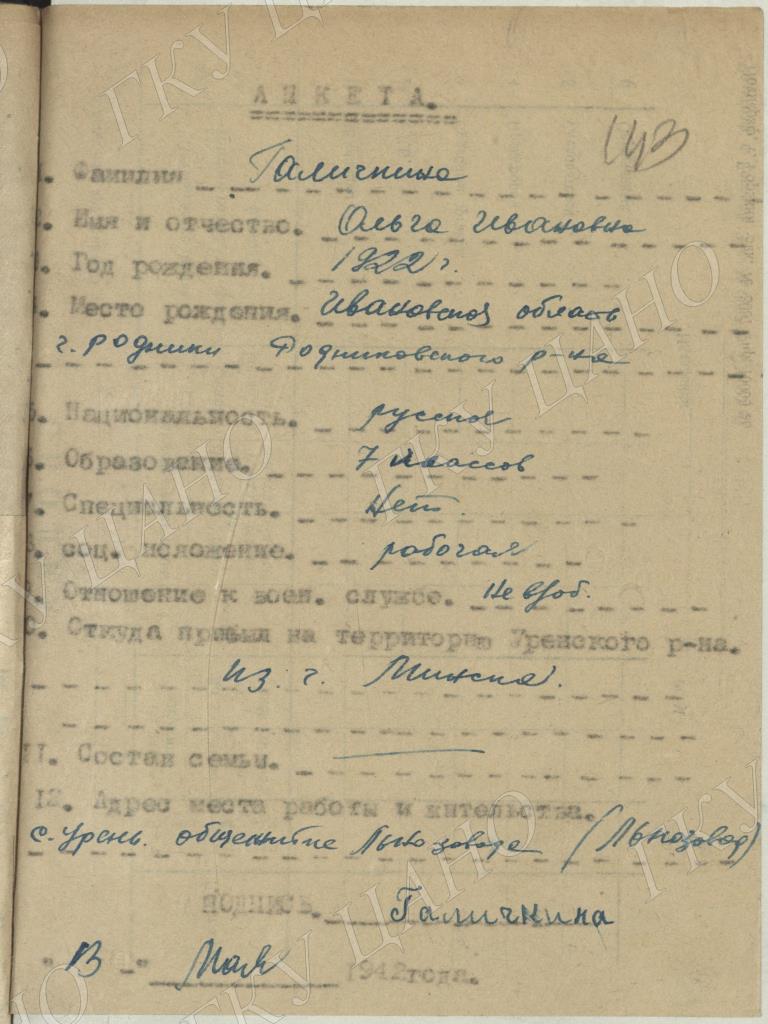 АНКЕТА.
143
1. Фамилия Галичкина
2. Имя и отчество. Ольга Ивановна
3. Год рождения. 1922 г.
4. Место рождения. Ивановской область
г. родники Родниковского р-на
5. Национальность. русская
6. Образование. 7 классов
7. Специальность. Нет.
8. соц. положение. рабочая
9. Отношение к воен. службе. не в/об.
10. Откуда прибыл на территорию Уренского р-на.
из г. Минска.
11. Состав семьи. —
12. Адрес места работы и жительства.
с. Урень. общежитие Льнозавода (Льнозавод)
ПОДПИСЬ. Галичкина
"13" Мая 1942 года.
ГКУ ЦАНО